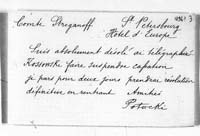 Comte Stroganoff St Petersbourg
Hotel d'Europe
Suis absolument désolé ai télégraphié
Kossowski faire suspendre capation
je pars pour deux jours prendre résolution
définitive en rentrant Amitiés
Potocki